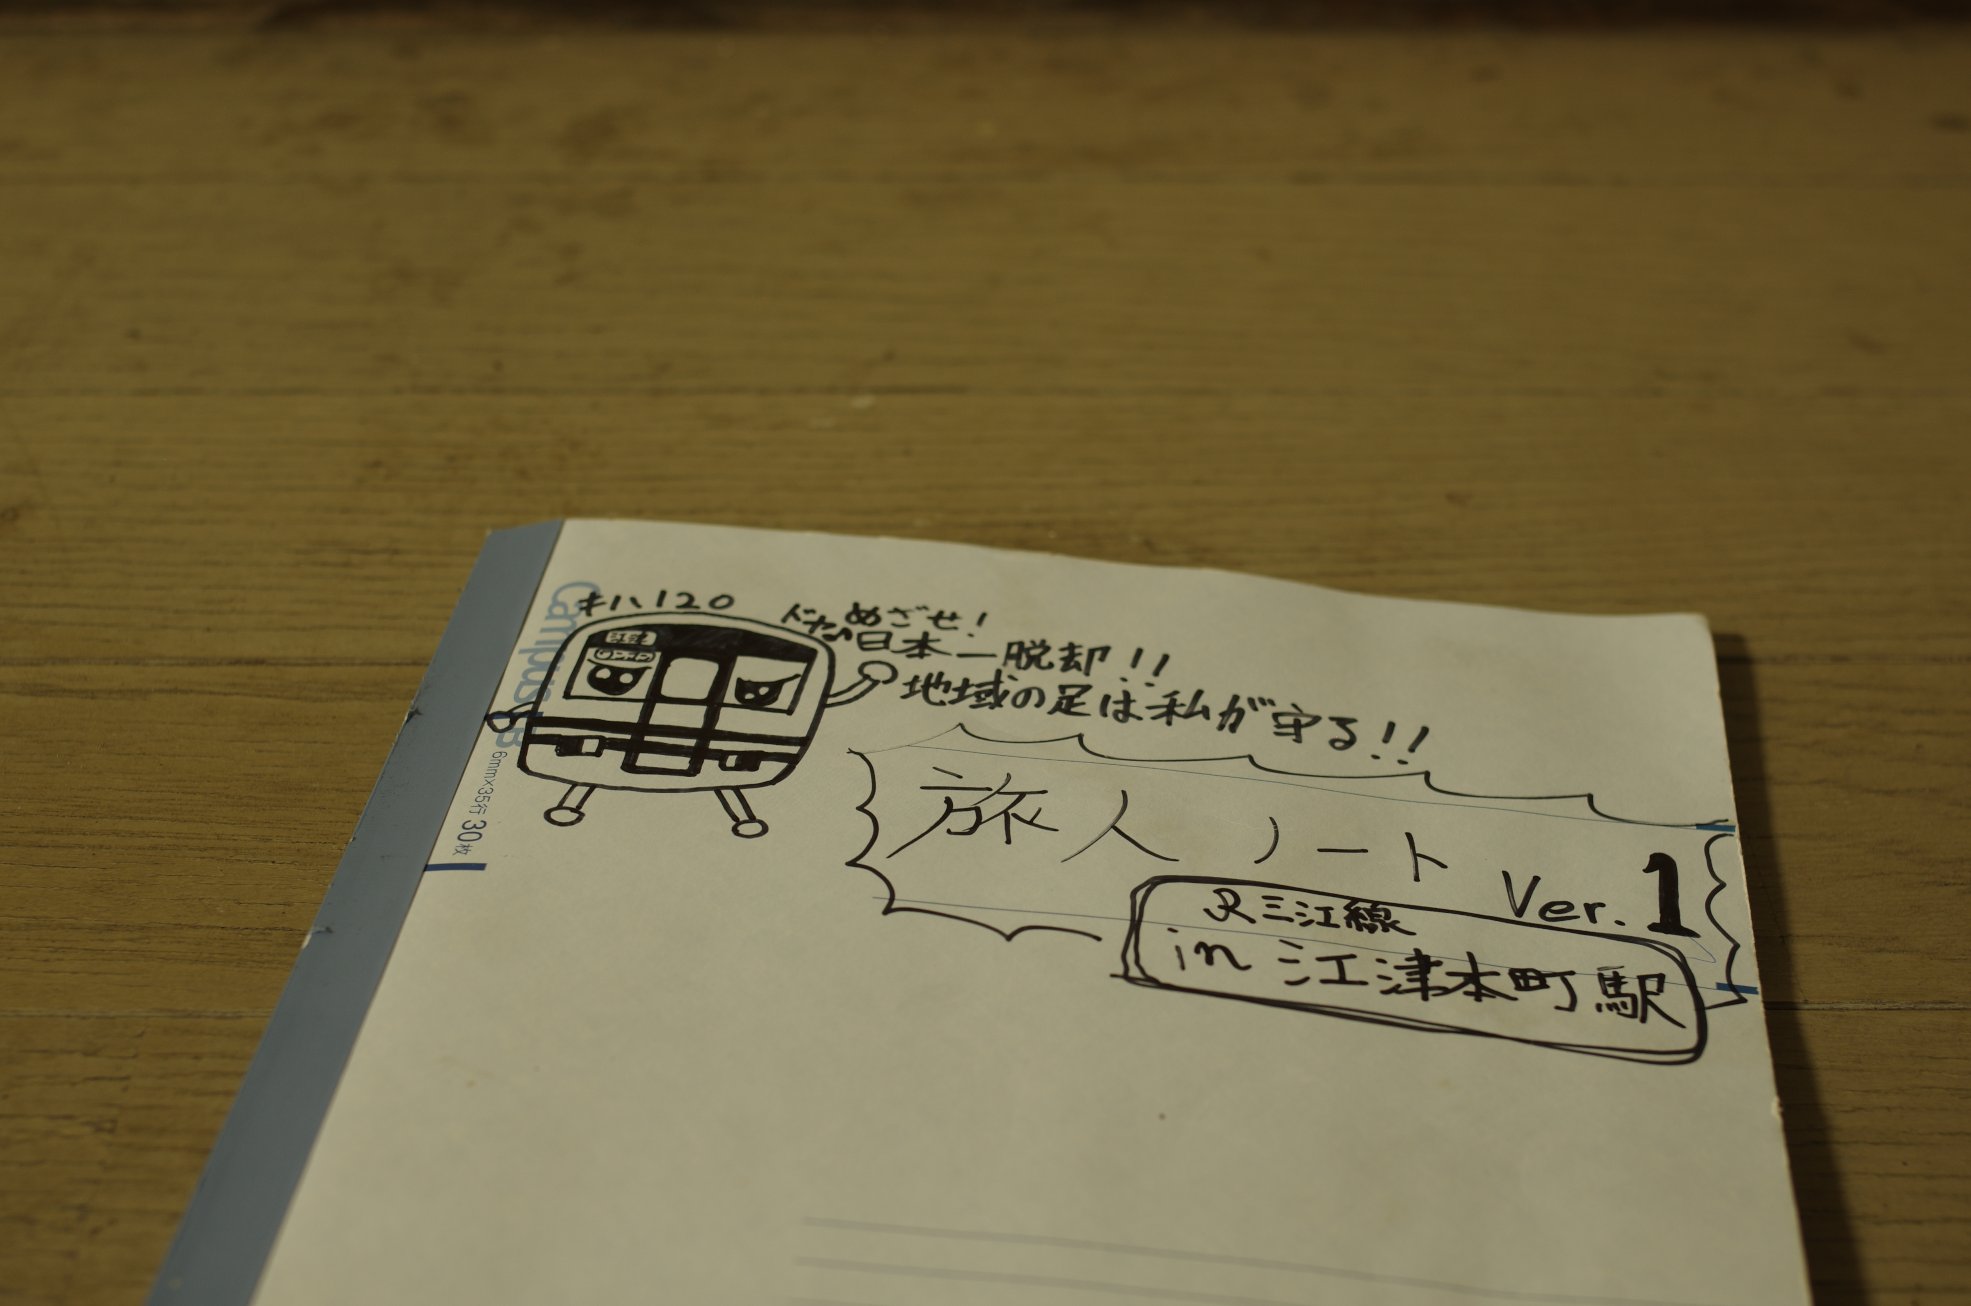 Campus
B
6mm×35行 30枚
キハ120
江津
ワンマン
ドヤァ
めざせ!
日本一脱却!!
地域の足は私が守る!!
旅人ノート
Ver.1
JR三江線
in 江津本町駅